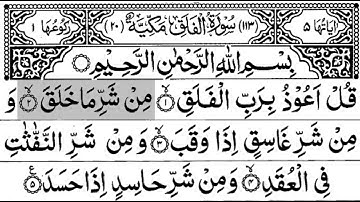 اٰيَاتُهَا ٥ (١١٣) سُوْرَةُ الْفَلَقِ مَكِّيَّةٌ (٢٠) رُكُوْعُهَا ١
بِسْمِ اللّٰهِ الرَّحْمٰنِ الرَّحِيْمِ
قُلْ اَعُوْذُ بِرَبِّ الْفَلَقِ ١ مِنْ شَرِّ مَا خَلَقَ ٢ وَ
مِنْ شَرِّ غَاسِقٍ اِذَا وَقَبَ ٣ وَمِنْ شَرِّ النَّفّٰثٰتِ
فِى الْعُقَدِ ٤ وَمِنْ شَرِّ حَاسِدٍ اِذَا حَسَدَ ٥